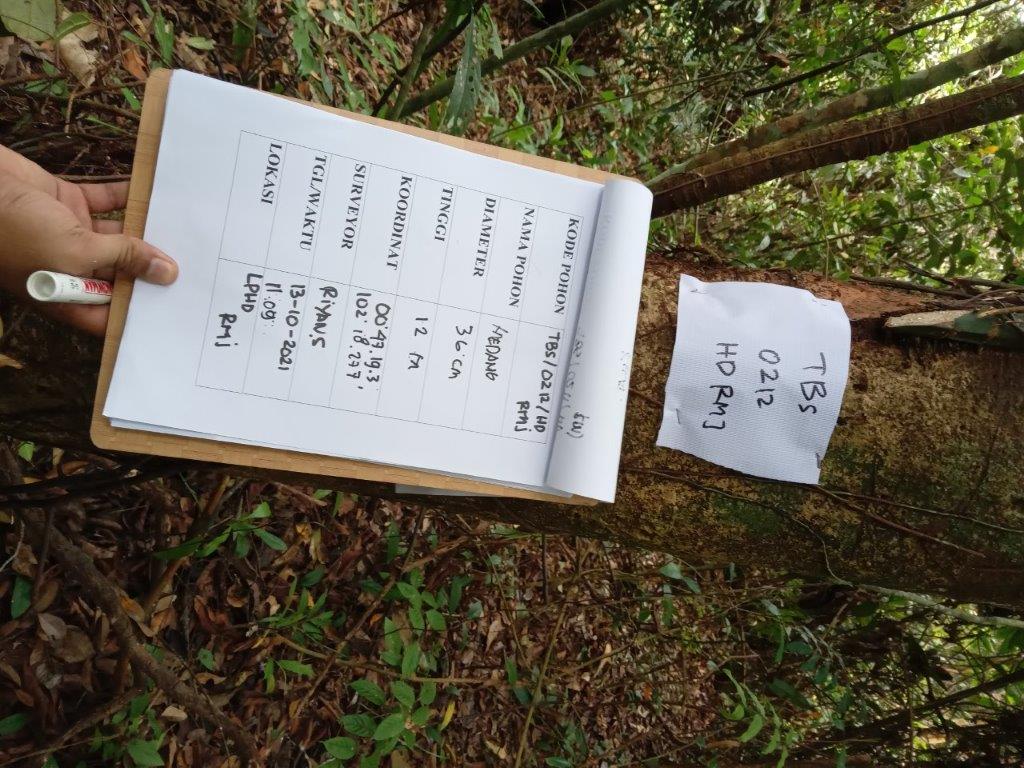 TBS
0212
HD RMJ
KODE POHON TBS/0212/HD
RMJ
NAMA POHON MEDANG
DIAMETER 36 cm
TINGGI 12 m
KOORDINAT 00°47.19.3
102° 18.277'
SURVEYOR RiYAN.S
TGL/WAKTU 13-10-2021
11.09
LOKASI LPHD
RMJ